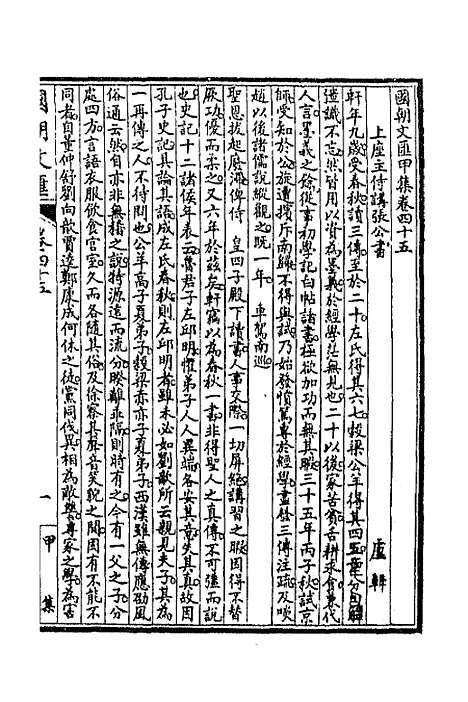 國朝文匯甲集卷四十五
上座主侍講張公書 盧軒
軒年九歲受春秋讀三傳至於二十左氏得其六七穀梁公羊得其四五章分句
遺識不忘然皆用以資為墨義於經學茫無見也二十以後家苦貧舌耕求食兼代
人言墨義之餘從事初學記白帖諸書極欲加功而無其暇三十五年丙子秋試京
師受知於公旋遭擯斥南歸不得與試乃始發憤篤專於經學盡發三傳注疏及啖
趙以後諸儒說縱觀之既一年 車駕南巡
聖恩拔起廢滯俾侍 皇四子殿下讀書人事交際一切屏絕講習之暇因得不替
厥功優而柔之又六年於茲矣軒竊以為春秋一書非得聖人之真傳不可彊而說
也史記十二諸侯年表云魯君子左邱明懼弟子人人異端各安其意失其真故因
孔子史記具論其語成左氏春秋則左邱明者雖未必如劉歆所云親見夫子其為
一再傳之人不待問也公羊高子夏弟子穀梁赤亦子夏弟子西漢雖無傳應劭風
俗通云然自亦非無稽之說特源遠而流分暌離乖隔則時有之今有一父之子分
處四方言語衣服飲食宮室久而各隨其俗及徐察其聲音笑貌之間固有不能不
同者自董仲舒劉向歆賈逵鄭康成何休之徒黨同伐異相為敵讐專家之學為害
國朝文匯
卷四十五
一
甲
集